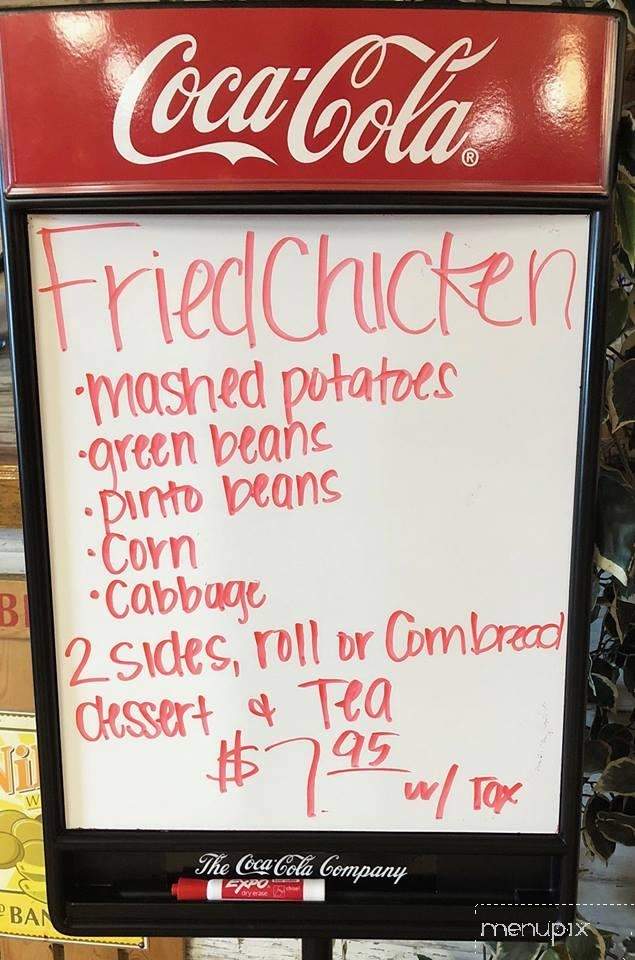 Coca-Cola®
Fried Chicken
·mashed potatoes
·green beans
·pinto beans
·Corn
·Cabbage
2 sides, roll or Cornbread
dessert & Tea
$7.95 w/ Tax
The Coca-Cola Company
EXPO
dry erase
BAN
menupix